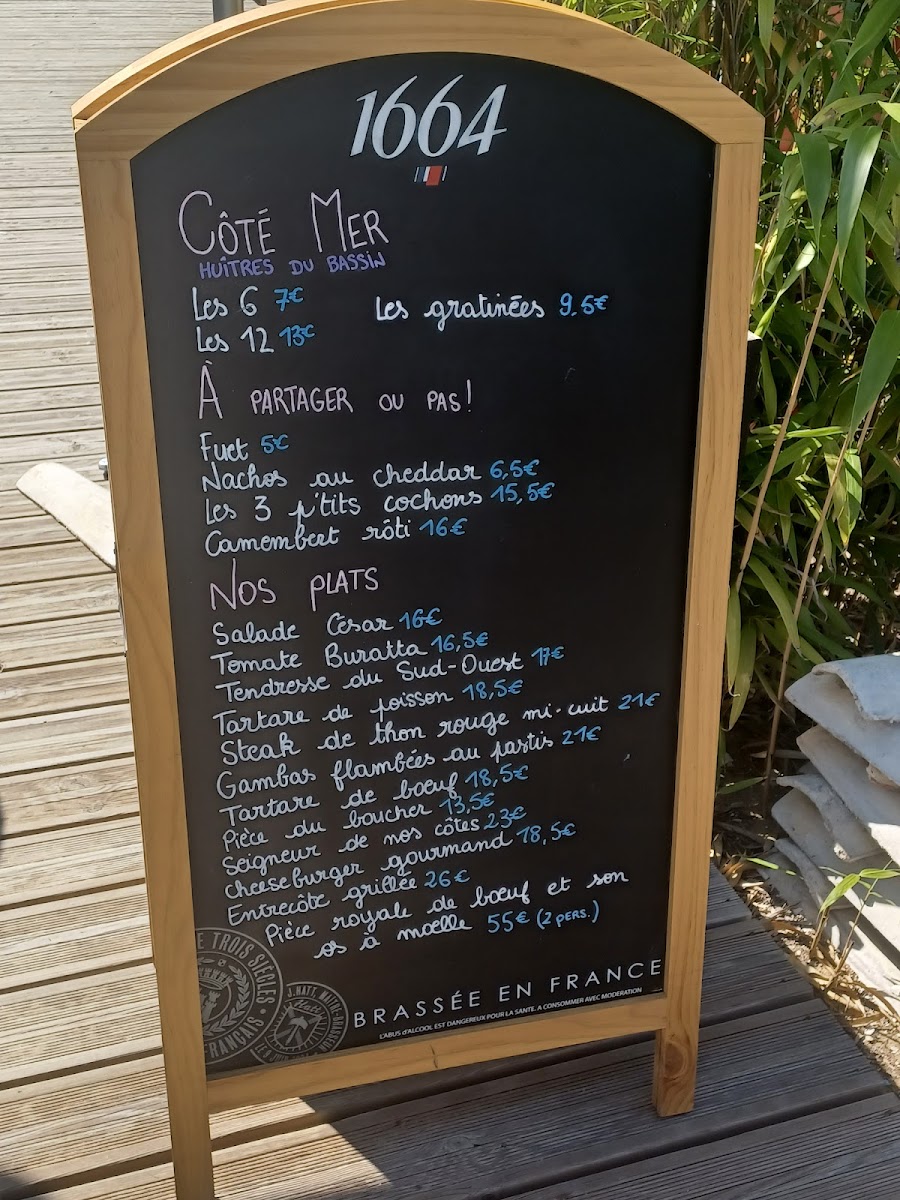 1664
CÔTÉ MER
HUÎTRES DU BASSIN
Les 6 7€
Les gratinées 9.5€
Les 12 13€
À PARTAGER OU PAS!
Fuet 5€
Nachos au cheddar 6,5€
Les 3 p'tits cochons 15,5€
Camembert rôti 16€
NOS PLATS
Salade César 16€
Tomate Buratta 16,5€
Tendresse du Sud-Ouest 17€
Tartare de poisson 18,5€
Steak de thon rouge mi-cuit 21€
Gambas flambées au pastis 21€
Tartare de boeuf 18,5€
Pièce du boucher 13,5€
Seigneur de nos côtes 23€
Cheeseburger gourmand 18,5€
Entrecôte grillée 26€
Pièce royale de boeuf et son
os à moelle 55€ (2 PERS.)
E TROIS SIÈCLES
FRANÇAIS
J.HATT MAITRE-BRASSEUR
BRASSÉE EN FRANCE
L'ABUS d'ALCOOL EST DANGEREUX POUR LA SANTE. A CONSOMMER AVEC MODERATION